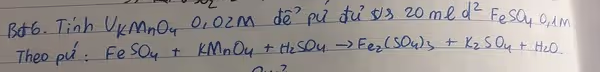 Bt6. Tính VKMnO4 0,02M để pứ đủ với 20 ml d² FeSO4 0,1M
Theo pứ: FeSO4 + KMnO4 + H2SO4 → Fe2(SO4)3 + K2SO4 + H2O.